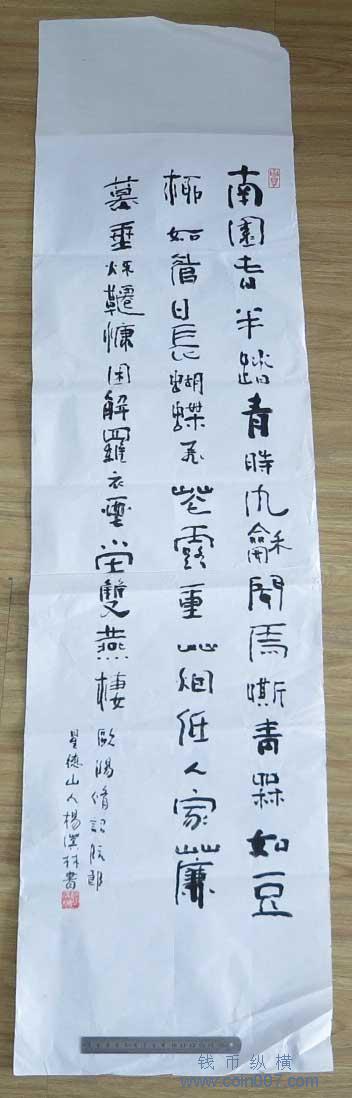 南園春半踏青時風龢聞馬嘶青槑如豆
柳如眉日長蝴蝶飛花露重艸烟低人家簾
幕垂秌韆慵困解羅衣畫堂雙燕棲
歐陽脩詞阮郎
星德山人楊漢林書
钱币纵横
www.coin007.com